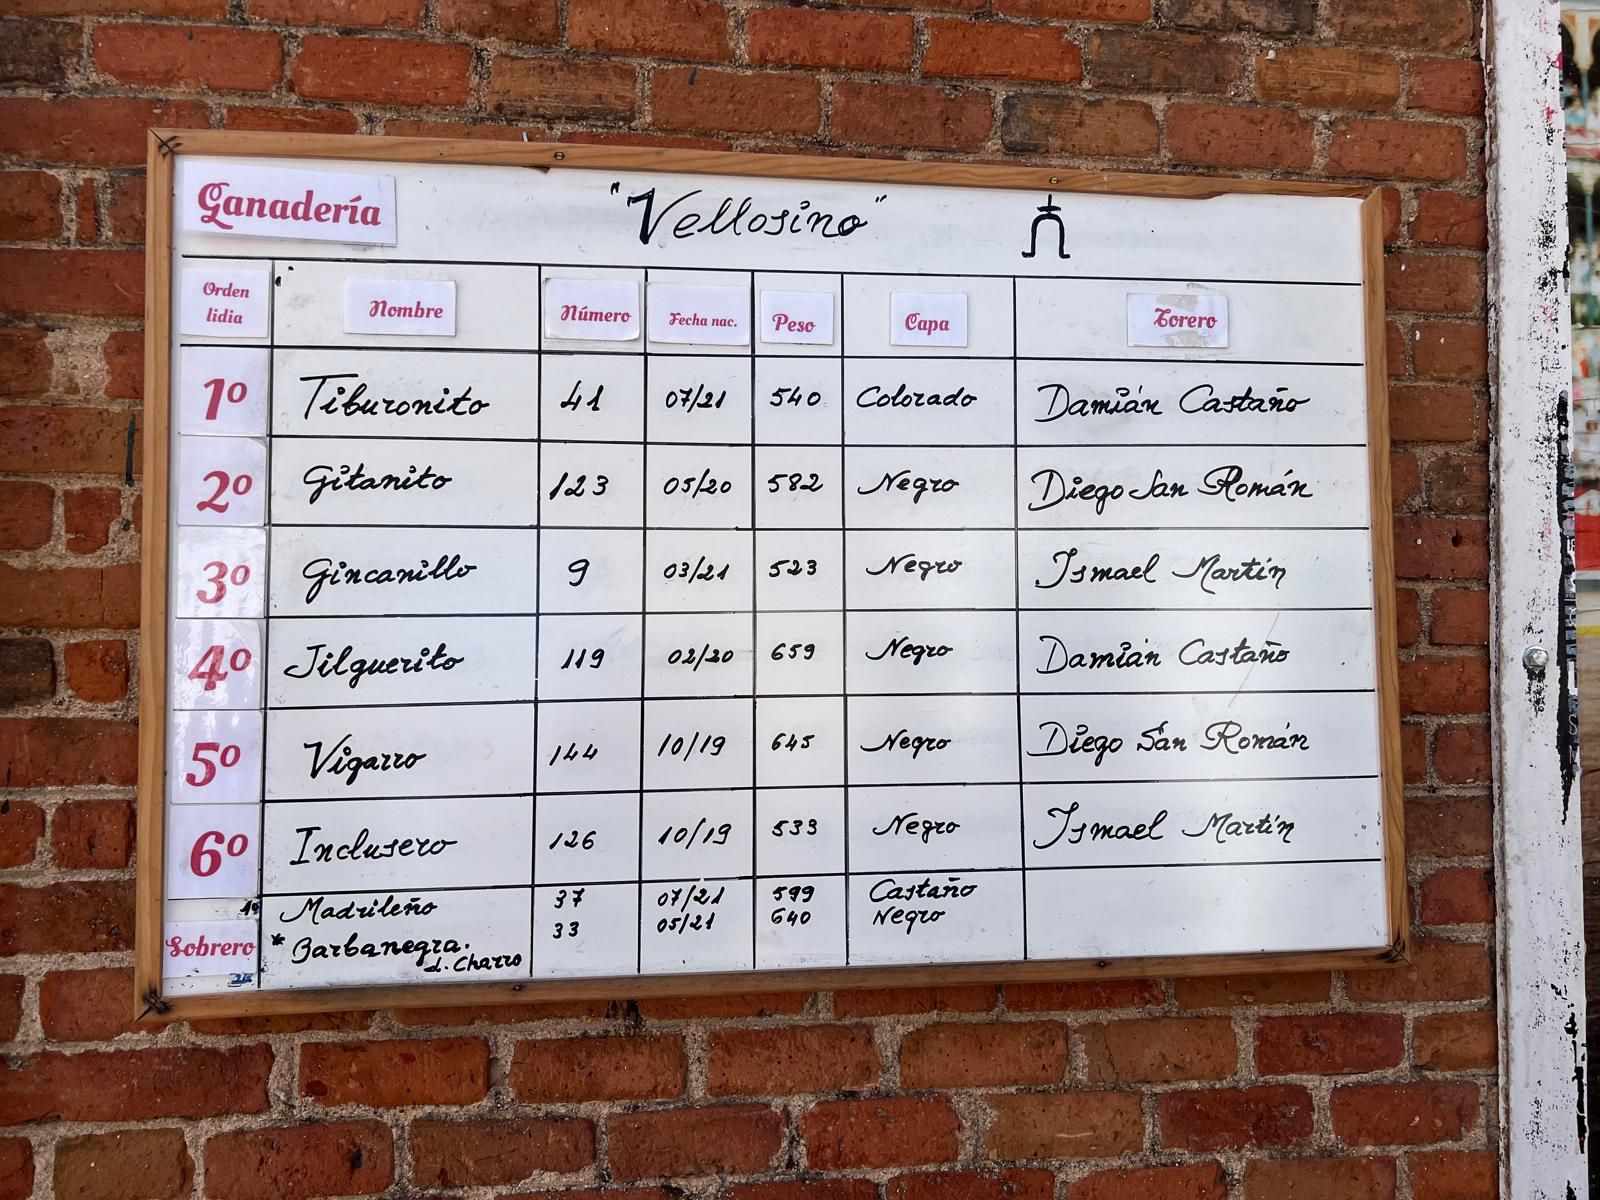 Ganadería "Vellosino"
Orden lidia Nombre Número Fecha nac. Peso Capa Torero
1º Tiburonito 41 07/21 540 Colorado Damián Castaño
2º Gitanito 123 05/20 582 Negro Diego San Román
3º Gincanillo 9 03/21 523 Negro Ismael Martín
4º Jilguerito 119 02/20 659 Negro Damián Castaño
5º Vigarro 144 10/19 645 Negro Diego San Román
6º Inclusero 126 10/19 533 Negro Ismael Martín
Sobrero Madrileño 37 07/21 599 Castaño
* Barbanegra. 33 05/21 640 Negro
d. Charro